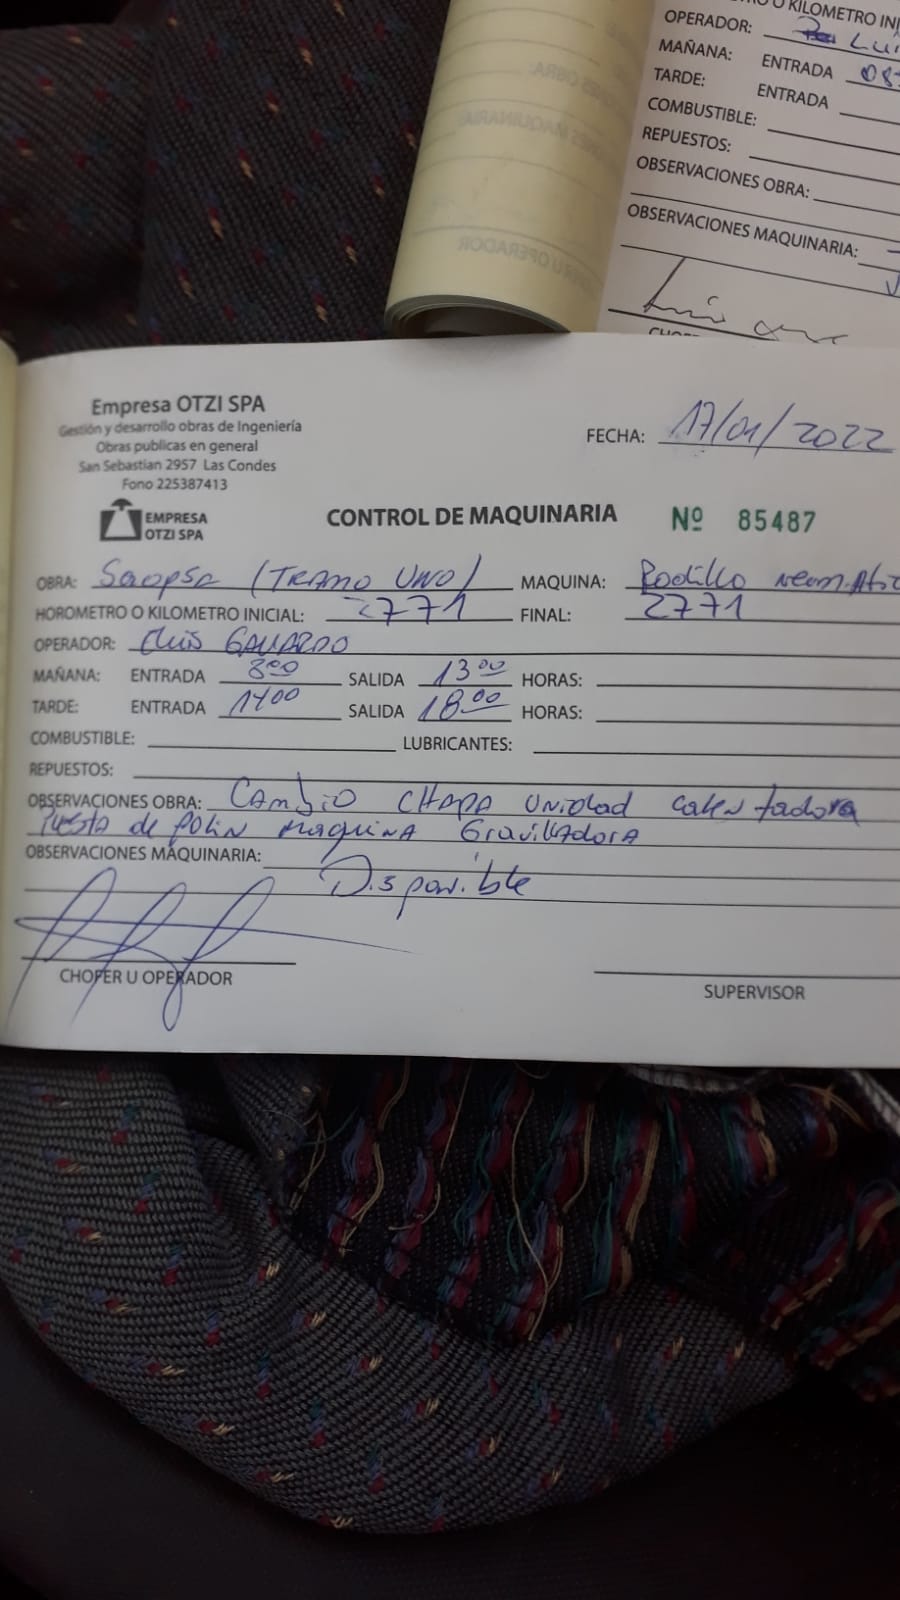 O KILOMETRO INI
OPERADOR: Lui
MAÑANA: ENTRADA 08
TARDE: ENTRADA
COMBUSTIBLE:
REPUESTOS:
OBSERVACIONES OBRA:
OBSERVACIONES MAQUINARIA:
Empresa OTZI SPA
Gestión y desarrollo obras de Ingeniería
Obras publicas en general
San Sebastian 2957 Las Condes
Fono 225387413
EMPRESA
OTZI SPA
FECHA: 17/01/2022
CONTROL DE MAQUINARIA Nº 85487
OBRA: (TRAMO UNO) MAQUINA: Rodillo neumatic
HOROMETRO O KILOMETRO INICIAL: 2771 FINAL: 2771
OPERADOR: Luis GALLARDO
MAÑANA: ENTRADA 8:00 SALIDA 13:00 HORAS:
TARDE: ENTRADA 1400 SALIDA 18:00 HORAS:
COMBUSTIBLE: LUBRICANTES:
REPUESTOS:
OBSERVACIONES OBRA: CAmbiO CHAPA Unidad calentadora
Puesta de polin MAquinA GravilladorA
OBSERVACIONES MAQUINARIA:
Disponible
CHOFER U OPERADOR
SUPERVISOR